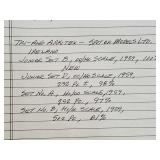 TRI-ANG ARKITEX - SPOT-ON MODELS LTD.
IRELAND
JUNIOR SET B, HO/OO SCALE, 1959,
NEW
JUNIOR SET D, HO/OO SCALE, 1959,
232 PCS, 98%
SET NO. A, HO/OO SCALE, 1959,
292 PCS, 97%
SET NO. B, HO/OO SCALE, 1959,
522 PCS, 81%